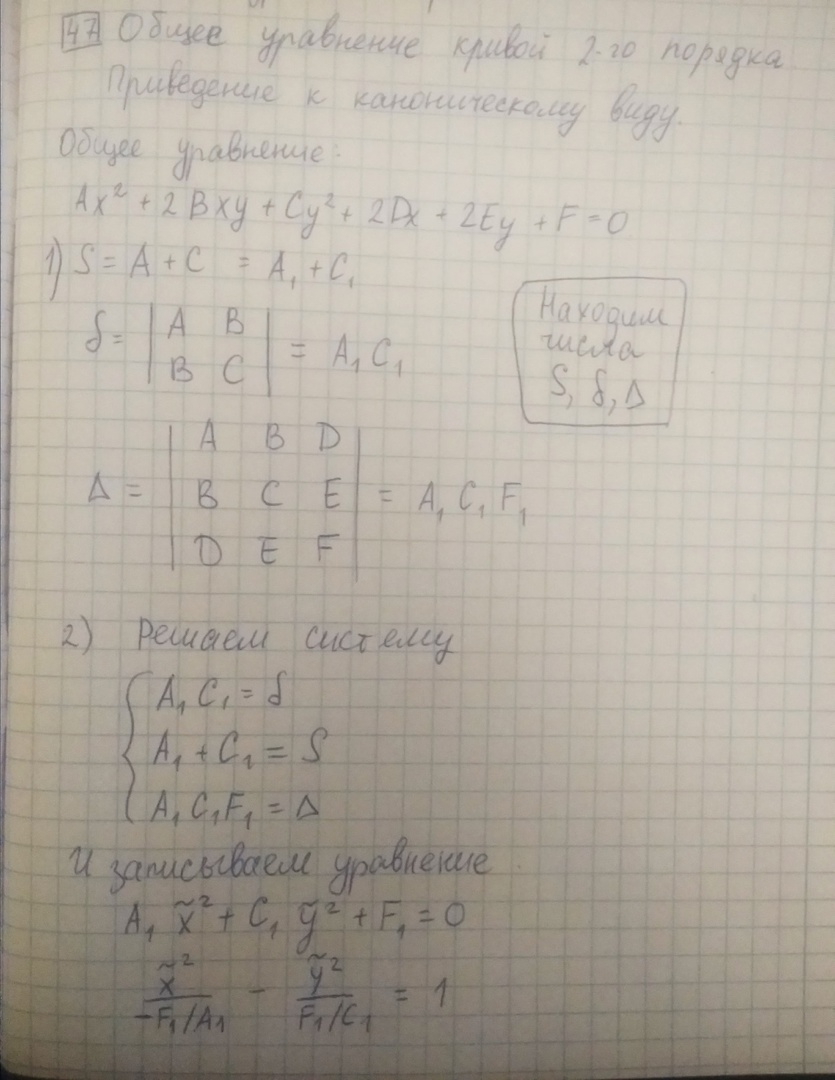 47 Общее уравнение кривой 2-го порядка
Приведение к каноническому виду.
Общее уравнение:
Ax² + 2Bxy + Cy² + 2Dx + 2Ey + F = 0
1) S = A + C = A₁ + C₁
δ = | A B |
| B C | = A₁C₁
Находим
числа
S, δ, Δ
| A B D |
Δ = | B C E | = A₁C₁F₁
| D E F |
2) Решаем систему
{ A₁C₁ = δ
A₁ + C₁ = S
A₁C₁F₁ = Δ
И записываем уравнение
A₁x̃² + C₁ỹ² + F₁ = 0
x̃²/(-F₁/A₁) - ỹ²/(F₁/C₁) = 1